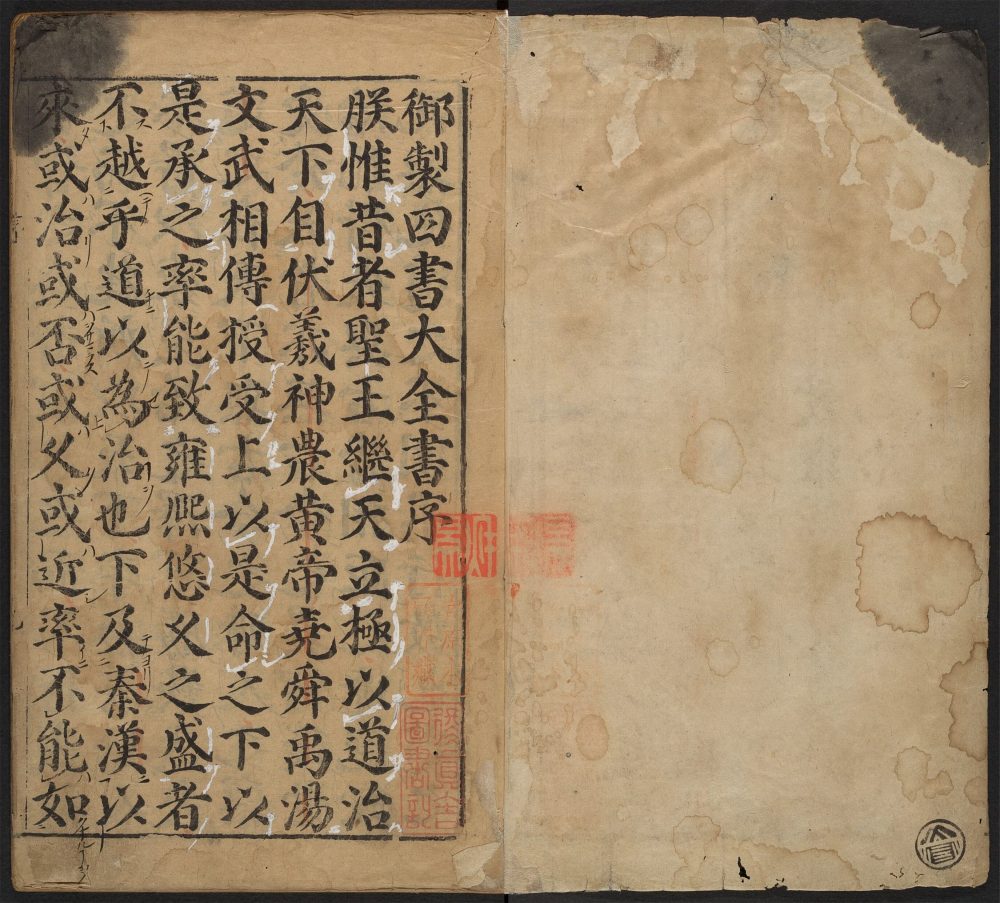 御製四書大全書序
朕惟昔者聖王繼天立極以道治
天下自伏羲神農黄帝堯舜禹湯
文武相傳授受上以是命之下以
是承之率能致雍熙悠乆之盛者
不越乎道以為治也下及秦漢以
來或治或否或乆或近率不能如